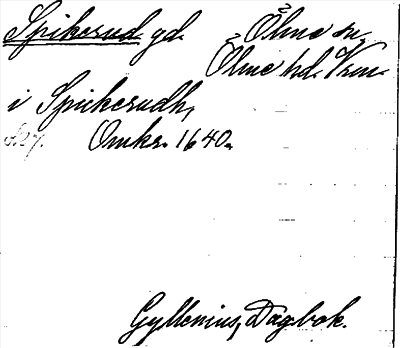 Spikerud gd. Ölme sn.
Ölme hd. Vrml.
i Spikerudh,
Omkr. 1640.
Gyllenius, Dagbok.